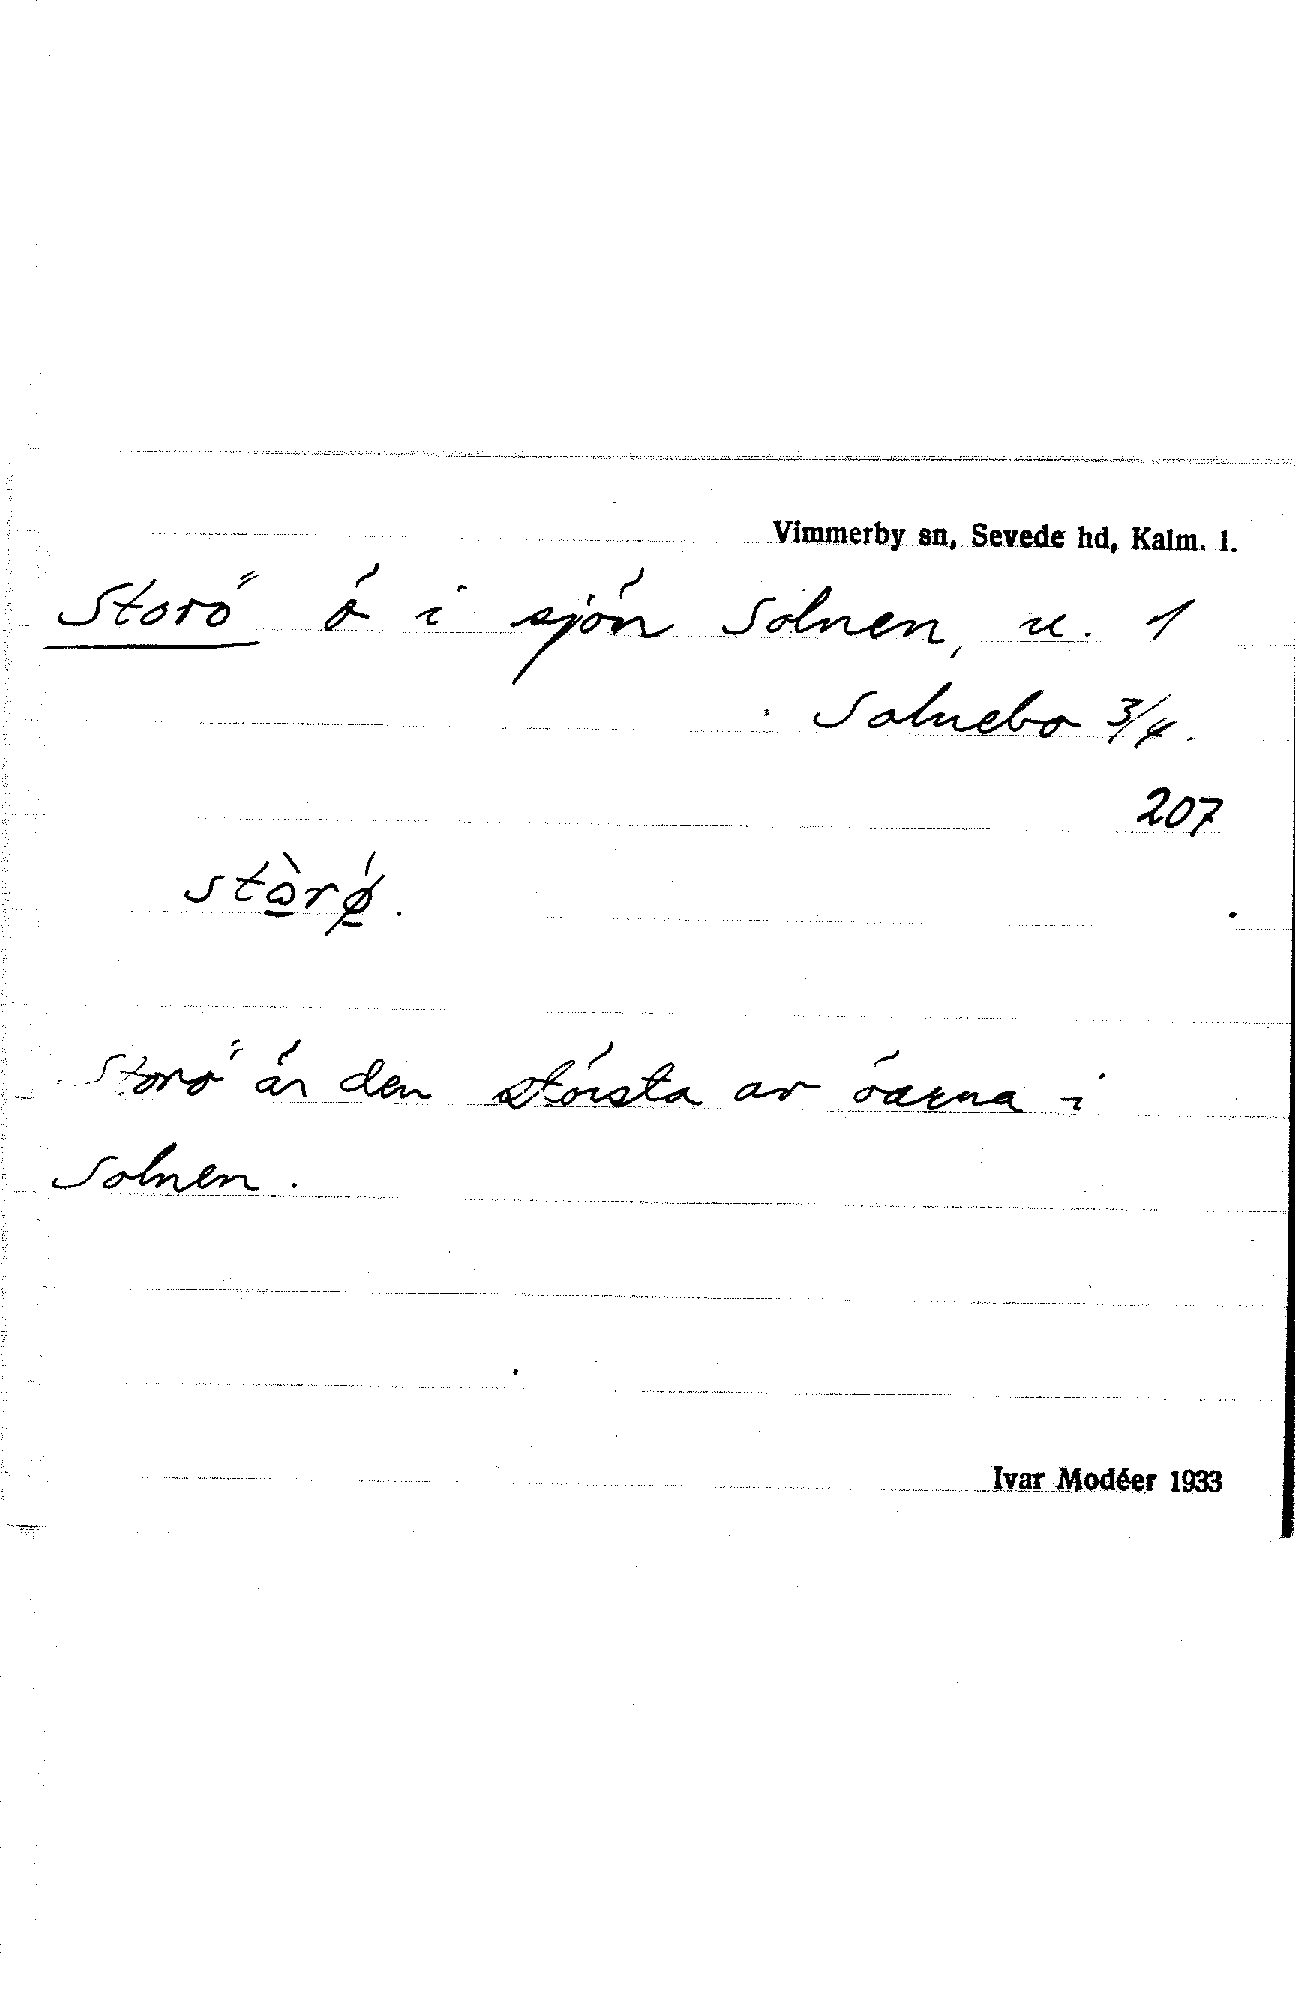 Vimmerby sn, Sevede hd, Kalm. l.
Storö ö i sjön Solnen, u. 1
Solnebo 3/4.
207
stòrǿ.
Storö är den största av öarna i
Solnen.
Ivar Modéer 1933